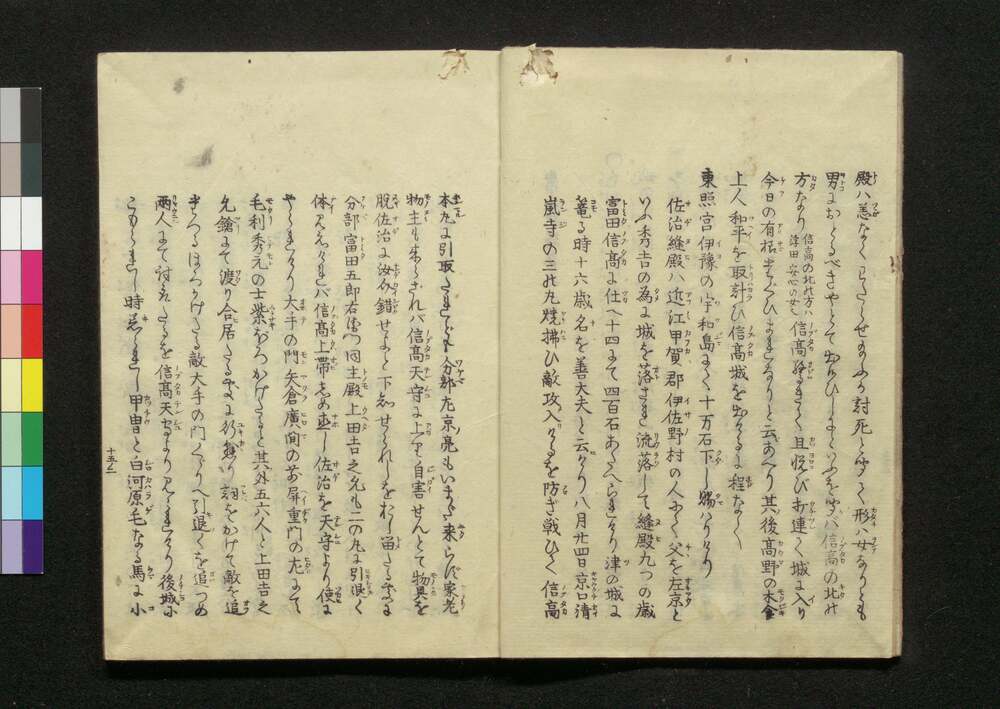 殿ハ恙なくわたらせ給ふか討死と聞く形ハ女なりとも
男におとるべきやとておもひしよといふを聞ハ信高の北の
方なり信高の北の方ハ津田の女也信高悦びきく且悦び打連て城に入り
今日の有様たぐひなきよと云あへり其後高野の木食
上人和平を取計ひ信高城を出けるに程なく
東照宮伊豫の宇和島にて十万石下し賜はりけり
佐治縫殿ハ近江甲賀郡伊佐野村の人にて父を左京と
いふ秀吉の為に城を落され流落して縫殿九つの歳
富田信高に仕へ十四にて四百石あたへられけり津の城に
篭る時十六歳名を善大夫と云けり八月廿四日京口清
嵐寺の三の丸焼拂ひ敵攻入けるを防ぎ戦ひて信高
本丸に引取たまへども分部左京亮もいまだ来らず家老
物主も来らされバ信高天守に上りて自害せんとて物具を
脱佐治に汝介錯せよと下知せられしをおし留たる處に
分部富田五郎右衛門同主殿上田吉之允も二の丸に引退く
体見えけれバ信高上帯をしめ直し佐治を天守より使に
やられけり大手の門矢倉廣間の前屏重門の左にて
毛利秀元の士紫ほろかけたると其外五六人と上田吉之
允鎗にて渡り合居たる處に行懸り詞をかけて敵を追
まくるほろかけたる敵大手の門くゞりへ引退くを追つめ
両人にて討取たるを信高天守より見られけり後城に
こもられし時着られし甲冑と白河原毛なる馬に小
十五ノ二